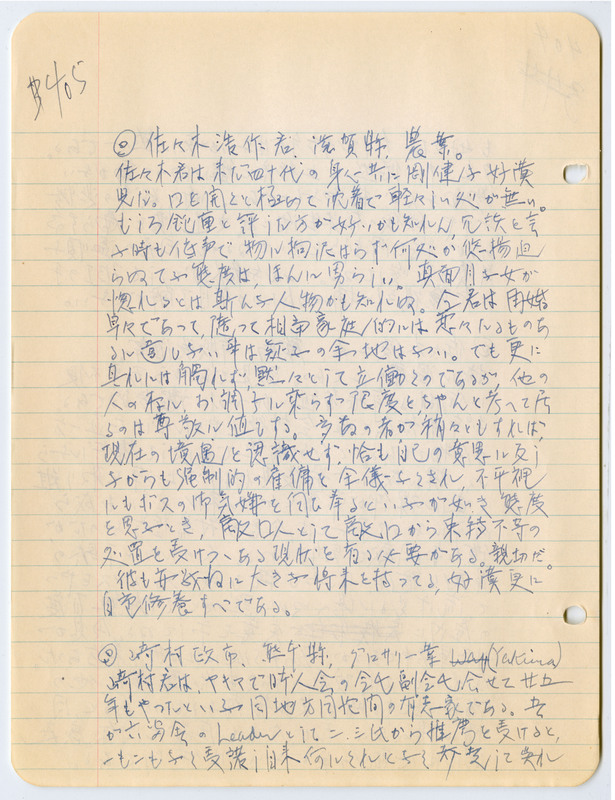 #405
佐々木浩作君、滋賀縣、農業。
佐々木君は未だ四十代の身心共に剛健な好漢
児だ。口を開くと極めて沈着で軽々しい処が無い。
むしろ鈍重と評した方が好いかも知れん、冗談を言
ふ時も低声で、物に拘泥はらず何処か悠揚迫
らぬてふ態度は、ほんに男らしい。真面目な女が
惚れるとは斯んな人物かも知れぬ。今君は再婚
早々であって、従って相当家庭的には
あるに違ひない事は疑ふの余地はない。でも更に
其れには触れず、黙々として立働くのであるが、他の
人の様に、お調子に乗らず限度をちゃんと考へて居
るのは尊敬に値ひする。多数の者が稍々ともすれば、
現在の境遇を認識せず、恰も自己の意思に反し
ながらも強制的の雇傭を余儀なくされ、不平裡
にもボスの御気嫌を伺ひ奉るといふが如き態度
を思ふとき、敵国人として敵国から束縛不等の
処置を受けつゝある現状を省る必要がある。親切だ。
彼も亦
に大きな将来を持ってる、好漢更に
自重修養すべである。
崎村政市、熊本縣、グロサリー業 (Yakima)
崎村君は、ヤキマで日本人会の会長副会長合せて廿五
年もやったといふ同地方同胞間の有志家である。
の Leader として二、三氏から推薦を受けると、
一も二もなく受諾し自来何にくれとなく